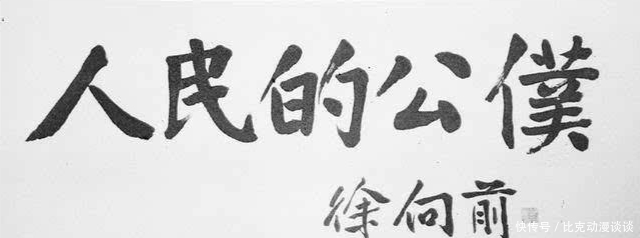 人民的公僕
徐向前
快传号／比克动漫谈谈